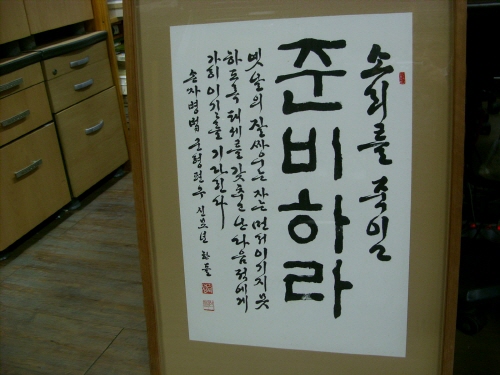 소리를 죽일
준비하라
옛날의 잘 싸우는 자는 먼저 이기지 못
하도록 태세를 갖춘 난 다음 적에게
가히 이김을 기다린다
손자병법 군형편 우 신묘년 한들